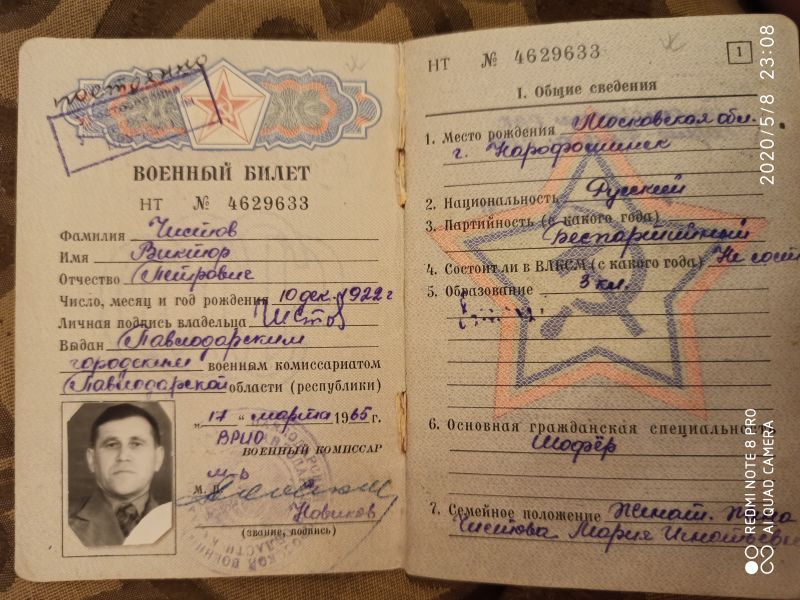 постоянно
ВОЕННЫЙ БИЛЕТ
НТ № 4629633
Фамилия Чистов
Имя Виктор
Отчество Петрович
Число, месяц и год рождения 10 дек. 1922 г
Личная подпись владельца Чистов
Выдан Павлодарским
городским военным комиссариатом
Павлодарской области (республики)
„17" марта 1965 г.
ВРИО
ВОЕННЫЙ КОМИССАР
м-р
М. П.
Новиков
(звание, подпись)
НТ № 4629633
1
I. Общие сведения
1. Место рождения Московская обл.
г. Нарофоминск
2. Национальность Русский
3. Партийность (с какого года)
Беспартийный
4. Состоит ли в ВЛКСМ (с какого года) Не сост
5. Образование 3 кл.
6. Основная гражданская специальность
Шофёр
7. Семейное положение Женат. Жена
Чистова Мария Игнатьевна
2020/5/8 23:08
REDMI NOTE 8 PRO
AI QUAD CAMERA